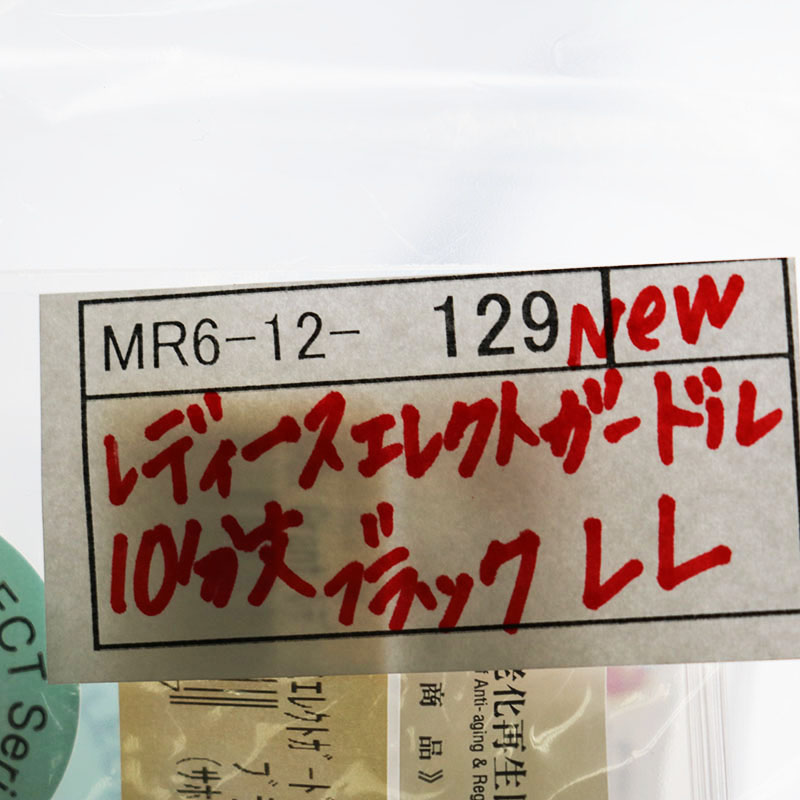 MR6-12- 129 New
レディースエレクトガードル
10分丈 ブラック LL
ECT Seri
エレクトガード
商品》
化再生
Anti-aging & Reg